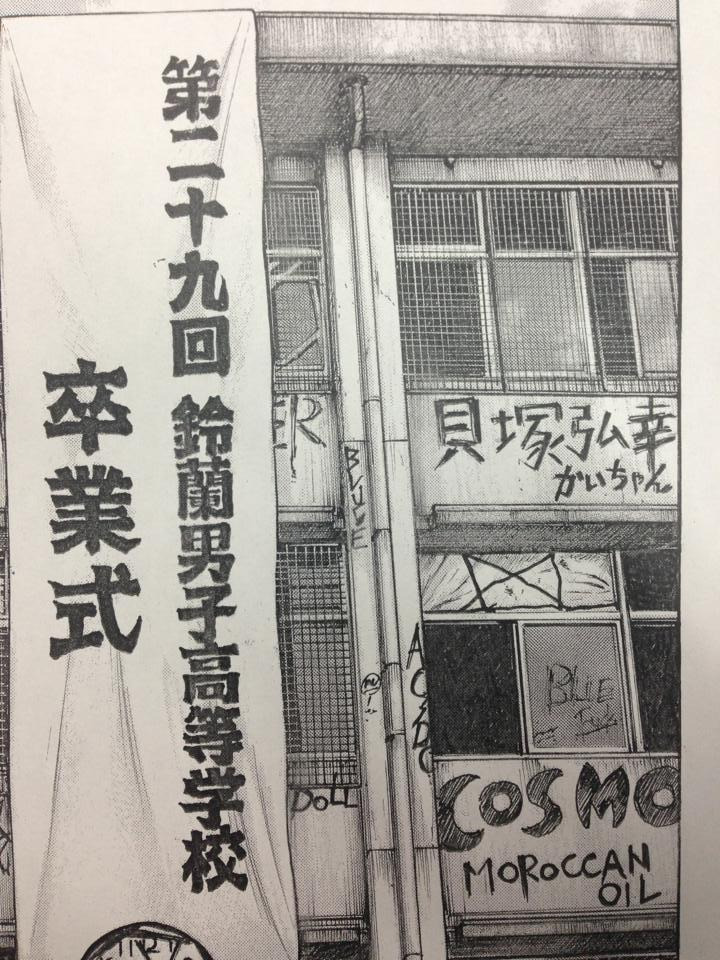 第二十九回 鈴蘭男子高等学校
卒業式
ER
貝塚弘幸
かいちゃん
BLUE
AC/DC
DOLL
COSMO
MOROCCAN
OIL